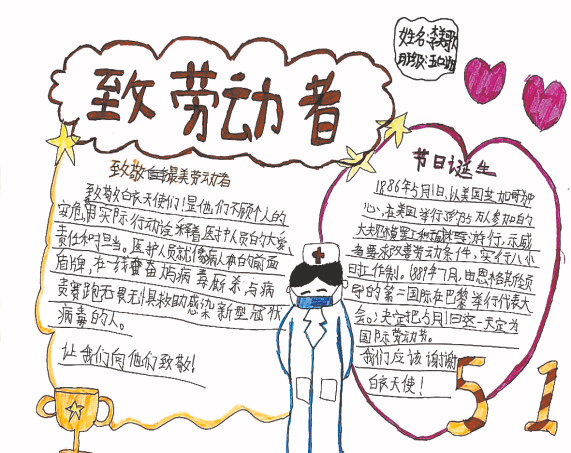 致劳动者
姓名:李美歌
班级:五(2)班
致敬最美劳动者
致敬白衣天使们!是他们不顾个人的
安危,用实际行动诠释着医护人员的大爱、
责任和担当。医护人员就像病人的前面
盾牌,在一线奋战与病毒厮杀,与病
赛跑无畏无惧救助感染新型冠状
病毒的人。
让我们向他们致敬!
节日诞生
1886年5月1日,以美国芝加哥为中
心,在美国举行了约35万人参加的
大规模罢工和示威游行,示威
者要求改善劳动条件,实行八小
时工作制。1889年7月,由恩格斯领
导的第二国际在巴黎举行代表大
会。决定把5月1日这一天定为
国际劳动节。
我们应该谢谢
白衣天使!
51